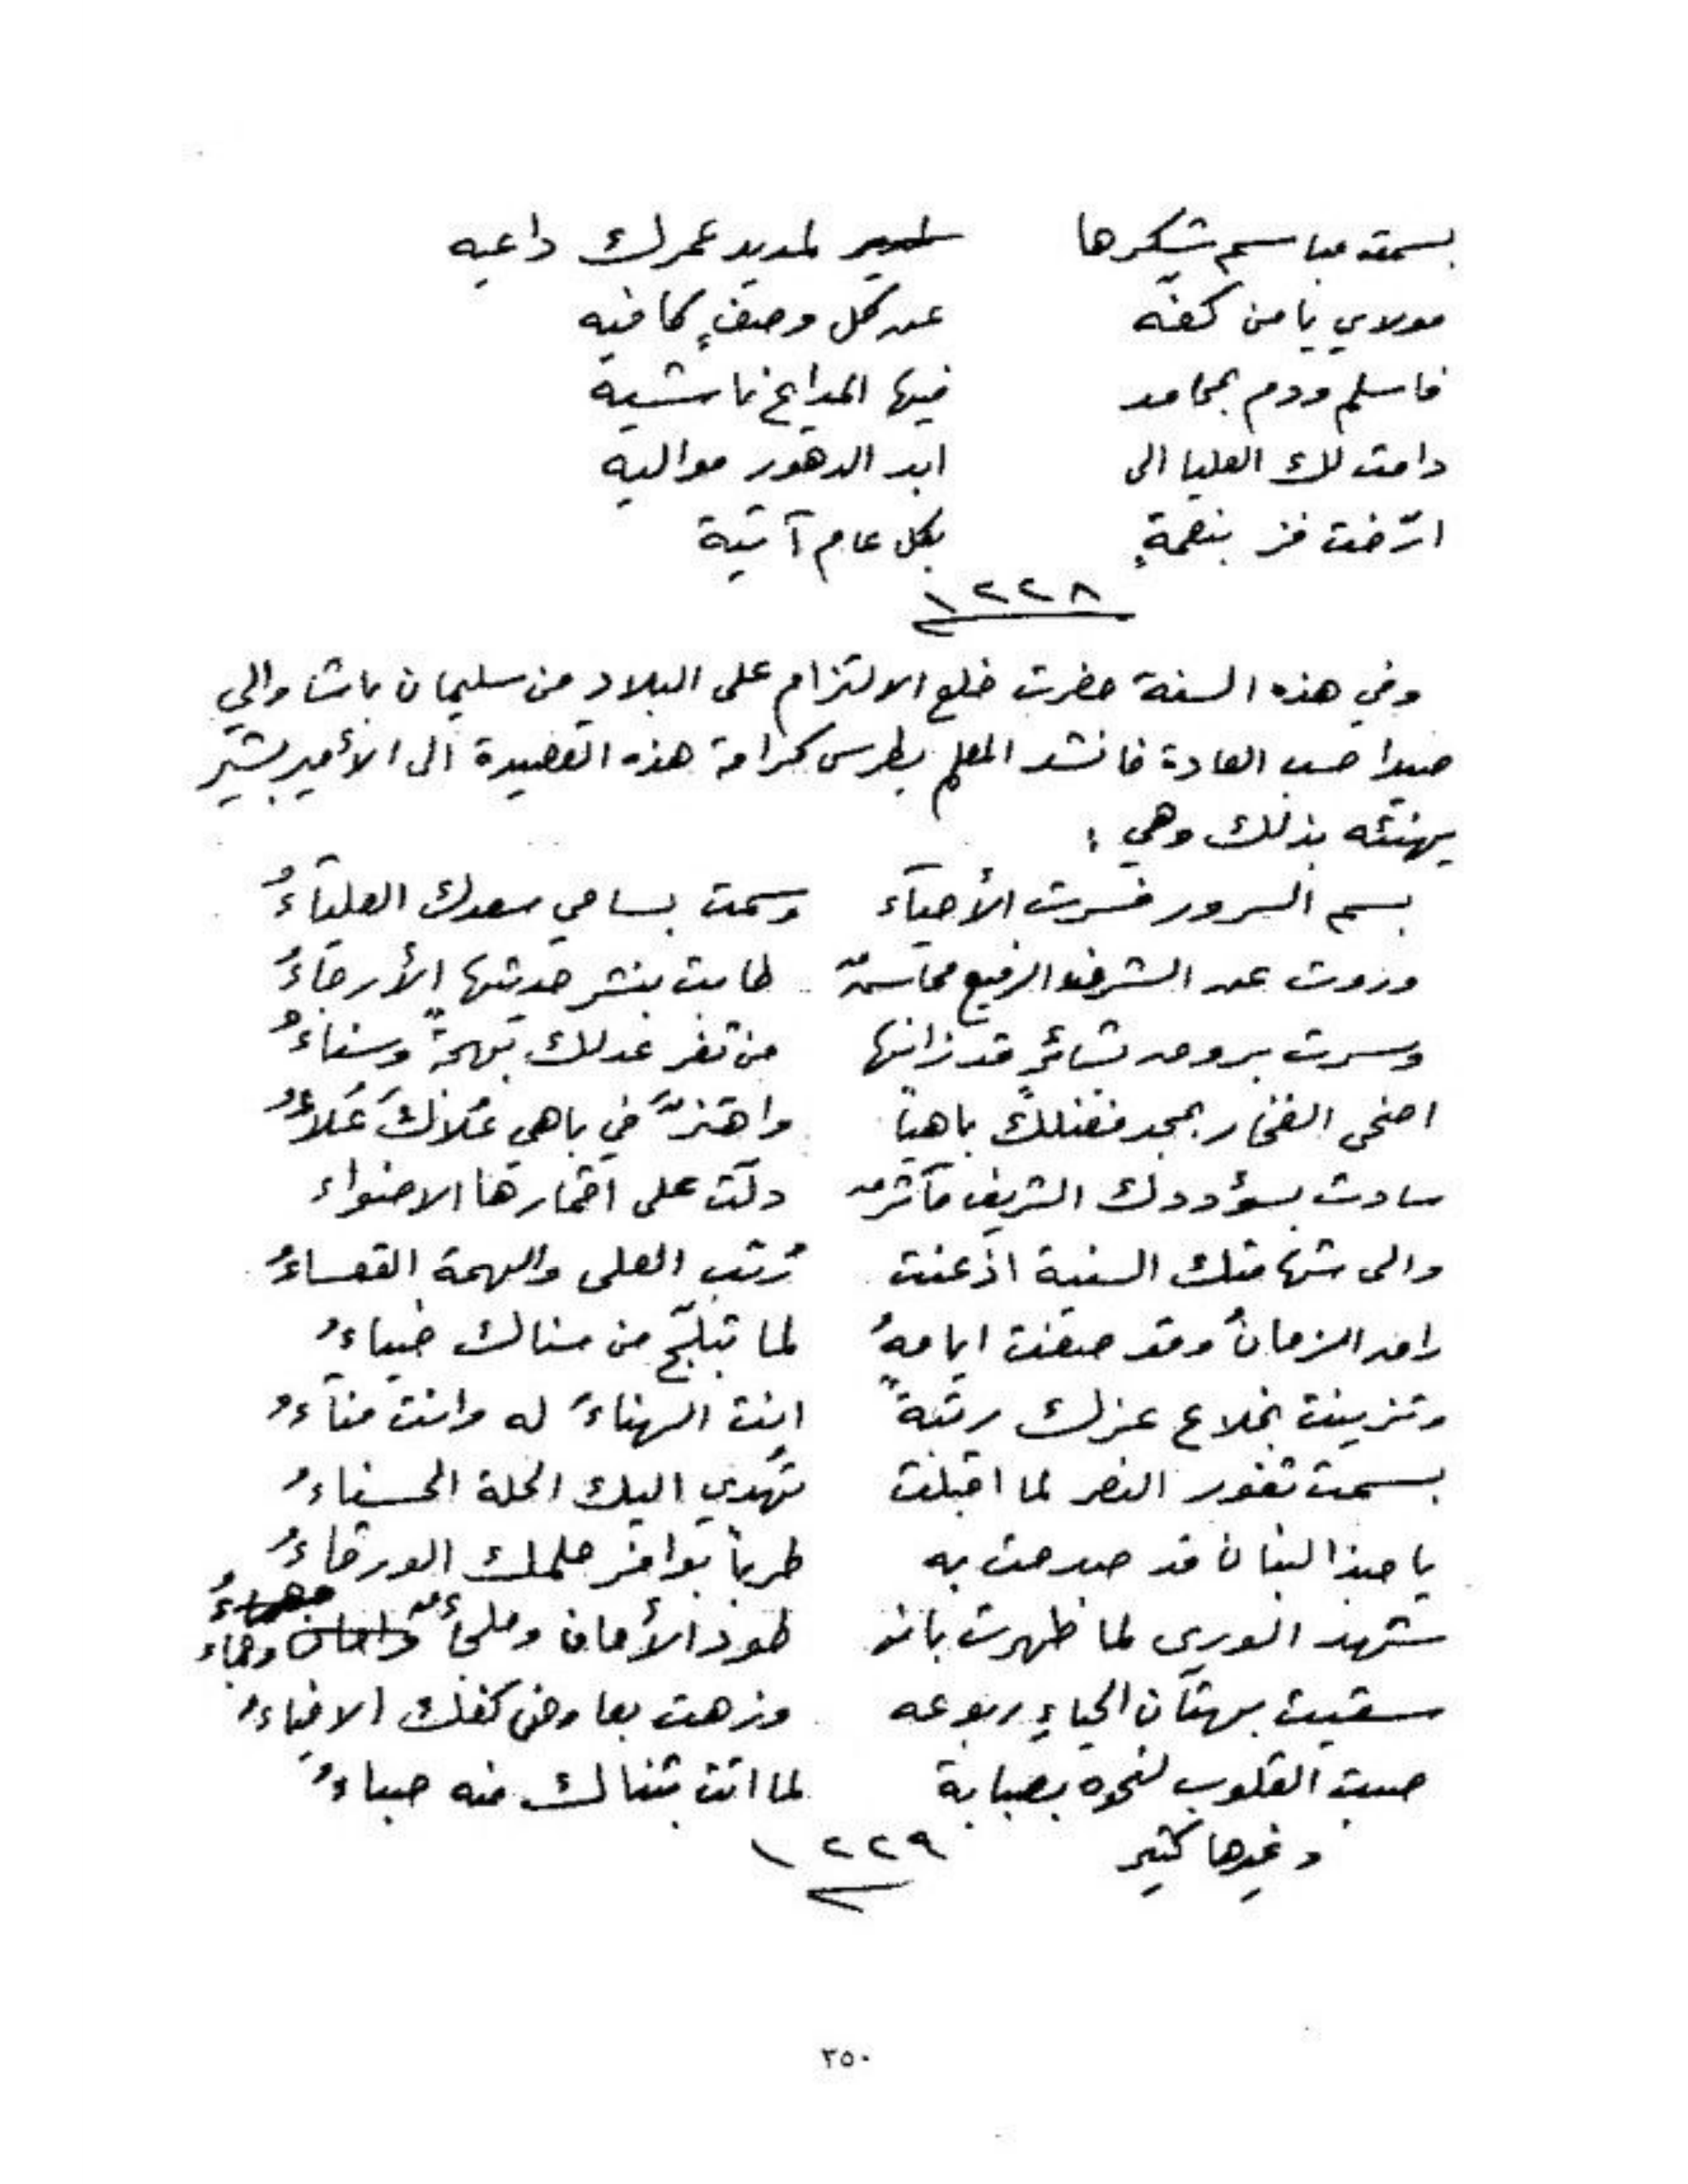 بسمت مباسم شكرها لمديد عمرك داعيه
مولاي يا من كفّه عن كل وصفٍ كافيه
فاسلم ودم بمحامد فيها المدايح ناشية
دامت لك العليا الى ابد الدهور مواليه
ارّخت فز بنعمةٍ بكل عام آتية
١٢٢٨
وفي هذه السنة حضرت خلع الالتزام على البلاد من سليمان باشا والي
صيدا حسب العادة فانشد المعلم بطرس كرامة هذه القصيدة الى الأمير بشير
يهنئه بذلك وهي :
بسم السرور فسرت الأحيآء وسمت بسامي سعدك العليآءُ
وروت عن الشرف الرفيع محاسنٌ طابت بنشر حديثها الأرجآءُ
وسرت بروض بشائرٍ قد زانها من ثغر عدلك بهجةٌ وسناءُ
اضحى الفخار بمجد فضلك باهياً واهتزَّ في باهي عُلاكَ عُلاءُ
سادت بسؤددك الشريف مآثرٌ دلّت على اقمارها الاضواء
والى شهامتك السنية اذعنت رُتب العلى والهمة القعساءُ
راق الزمانُ وقد صفت ايامهُ لما تبلّج من سناك ضياءُ
وتزينت بخلاع عزك رتبةٌ انت الهناءُ له وانت مناءُ
بسمت ثغور النصر لما اقبلت تهدي اليك الحلة الحسناءُ
يا حبذا لبنان قد صدحت به طرباً بوافر حلمك الورقاءُ
شهد الورى لما ظهرت بانه طود الأمان وملجأٌ وحماء
سقيت بهتان الحياءِ ربوعه وزهت بعارض كفك الافياءُ
صبت القلوب لنحوه بصبابة لما اتت بثناك منه صباءُ
وغيرها كثير ١٢٢٩
٣٥٠